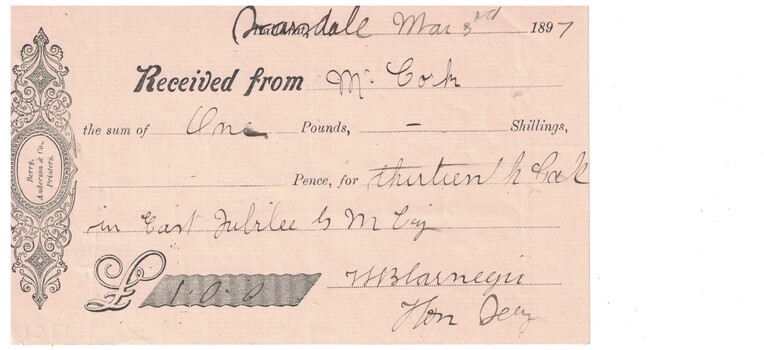 Mar 3rd 1897
Received from Mr Cock
the sum of One Pounds, – Shillings,
Pence, for thirteen
in East Jubilee G M Coy
£ 1. 0. 0
Hon Secy
Berry,
Anderson & Co.,
Printers.